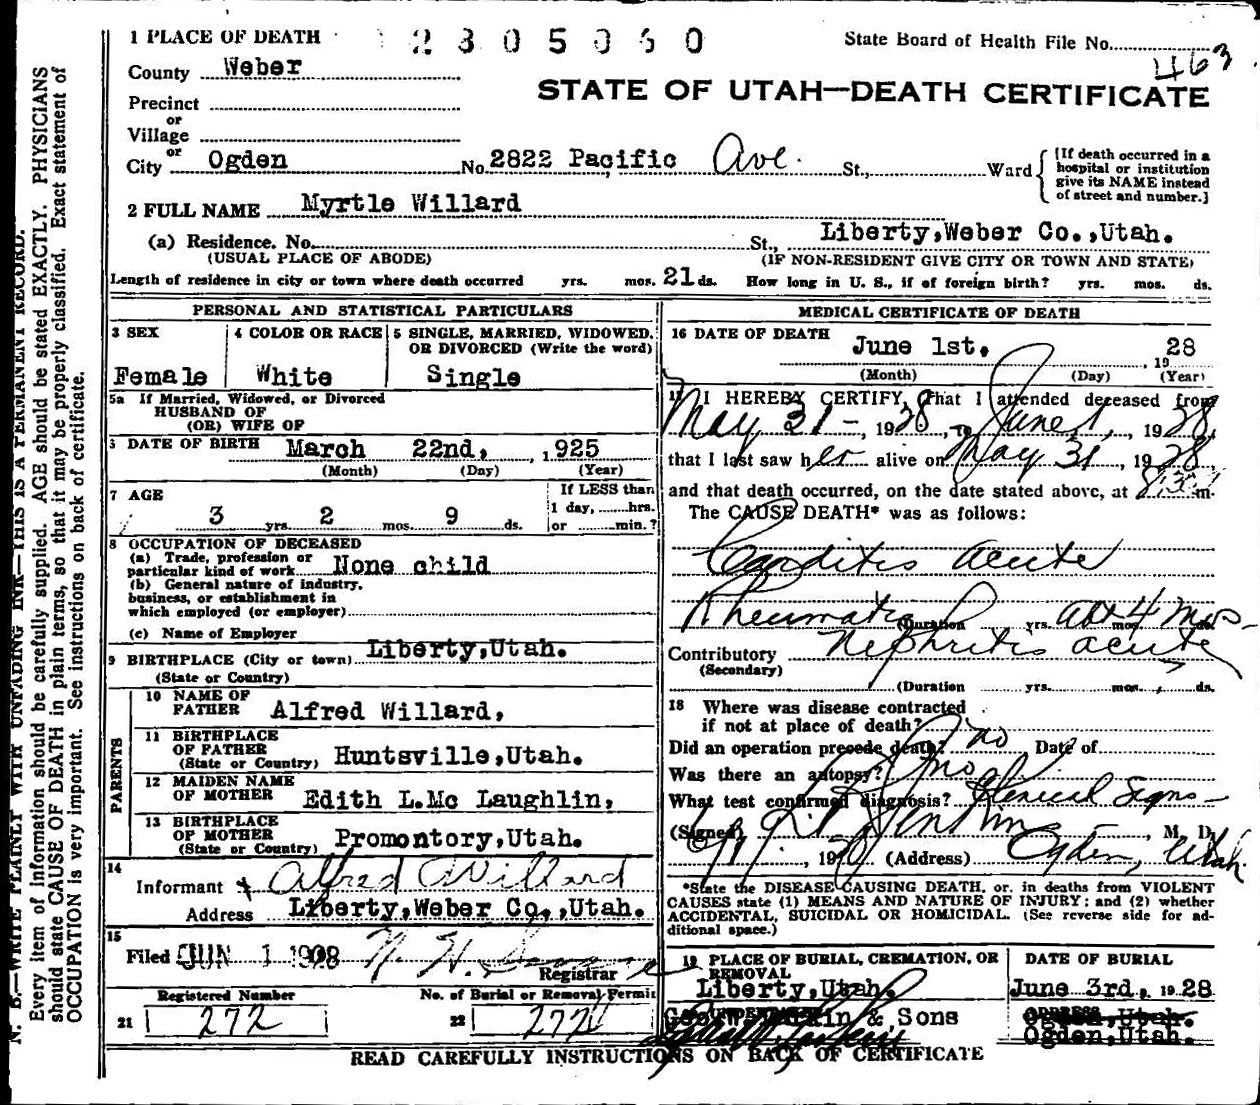 1 PLACE OF DEATH 2805060 State Board of Health File No.
463
County Weber
STATE OF UTAH—DEATH CERTIFICATE
Precinct
or
Village
or
City Ogden No. 2822 Pacific Ave. St., Ward
[If death occurred in a
hospital or institution
give its NAME instead
of street and number.]
2 FULL NAME Myrtle Willard
(a) Residence. No. St., Liberty,Weber Co.,Utah.
(USUAL PLACE OF ABODE) (IF NON-RESIDENT GIVE CITY OR TOWN AND STATE)
Length of residence in city or town where death occurred yrs. mos. 21 ds. How long in U. S., if of foreign birth? yrs. mos. ds.
PERSONAL AND STATISTICAL PARTICULARS
3 SEX 4 COLOR OR RACE 5 SINGLE, MARRIED, WIDOWED,
OR DIVORCED (Write the word)
Female White Single
5a If Married, Widowed, or Divorced
HUSBAND OF
(OR) WIFE OF
6 DATE OF BIRTH March 22nd, 1925
(Month) (Day) (Year)
7 AGE
3 yrs. 2 mos. 9 ds.
If LESS than
1 day, hrs.
or min.?
8 OCCUPATION OF DECEASED
(a) Trade, profession or
particular kind of work None child
(b) General nature of industry,
business, or establishment in
which employed (or employer)
(c) Name of Employer
9 BIRTHPLACE (City or town) Liberty,Utah.
(State or Country)
PARENTS
10 NAME OF
FATHER Alfred Willard,
11 BIRTHPLACE
OF FATHER
(State or Country) Huntsville,Utah.
12 MAIDEN NAME
OF MOTHER Edith L.Mc Laughlin,
13 BIRTHPLACE
OF MOTHER
(State or Country) Promontory,Utah.
14
Informant Alfred Willard
Address Liberty,Weber Co.,Utah.
15
Filed JUN 1 1928 N. H.
Registrar
Registered Number No. of Burial or Removal Permit
21 272 22 272
MEDICAL CERTIFICATE OF DEATH
16 DATE OF DEATH
June 1st. 1928
(Month) (Day) (Year)
17 I HEREBY CERTIFY, That I attended deceased from
May 31 - 1928, to June 1, 1928,
that I last saw her alive on May 31, 1928,
and that death occurred, on the date stated above, at m.
The CAUSE DEATH* was as follows:
Carditis acute
Rheumatic (Duration yrs. abt 4 mos. ds.
Contributory Nephritis acute
(Secondary)
(Duration yrs. mos. ds.
18 Where was disease contracted
if not at place of death?
Did an operation precede death? no Date of
Was there an autopsy? no
What test confirmed diagnosis? Clenical Signs
(Signed) Jenkins, M. D.
(Address) Ogden, Utah
*State the DISEASE CAUSING DEATH, or, in deaths from VIOLENT
CAUSES state (1) MEANS AND NATURE OF INJURY; and (2) whether
ACCIDENTAL, SUICIDAL OR HOMICIDAL. (See reverse side for ad-
ditional space.)
19 PLACE OF BURIAL, CREMATION, OR
REMOVAL
DATE OF BURIAL
Liberty,Utah. June 3rd, 1928
& Sons Ogden,Utah.
Ogden,Utah.
READ CAREFULLY INSTRUCTIONS ON BACK OF CERTIFICATE
N. B.—WRITE PLAINLY WITH UNFADING INK—THIS IS A PERMANENT RECORD.
Every item of information should be carefully supplied. AGE should be stated EXACTLY. PHYSICIANS
should state CAUSE OF DEATH in plain terms, so that it may be properly classified. Exact statement of
OCCUPATION is very important. See instructions on back of certificate.